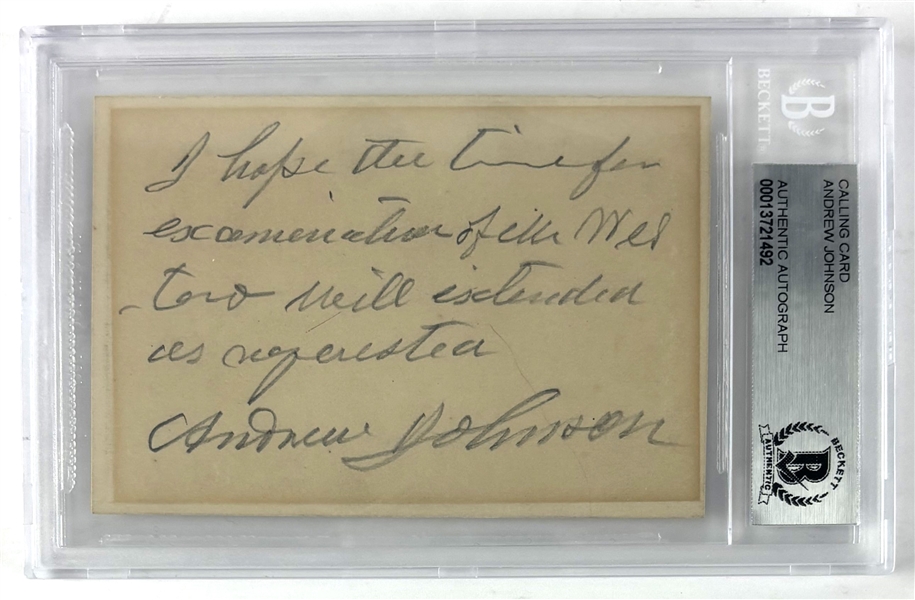 I hope the time for
examination of Mr Wes
tovo will extended
as requested
Andrew Johnson
BECKETT
B
CALLING CARD
ANDREW JOHNSON
AUTHENTIC AUTOGRAPH
00013721492
BECKETT
AUTHENTIC
B